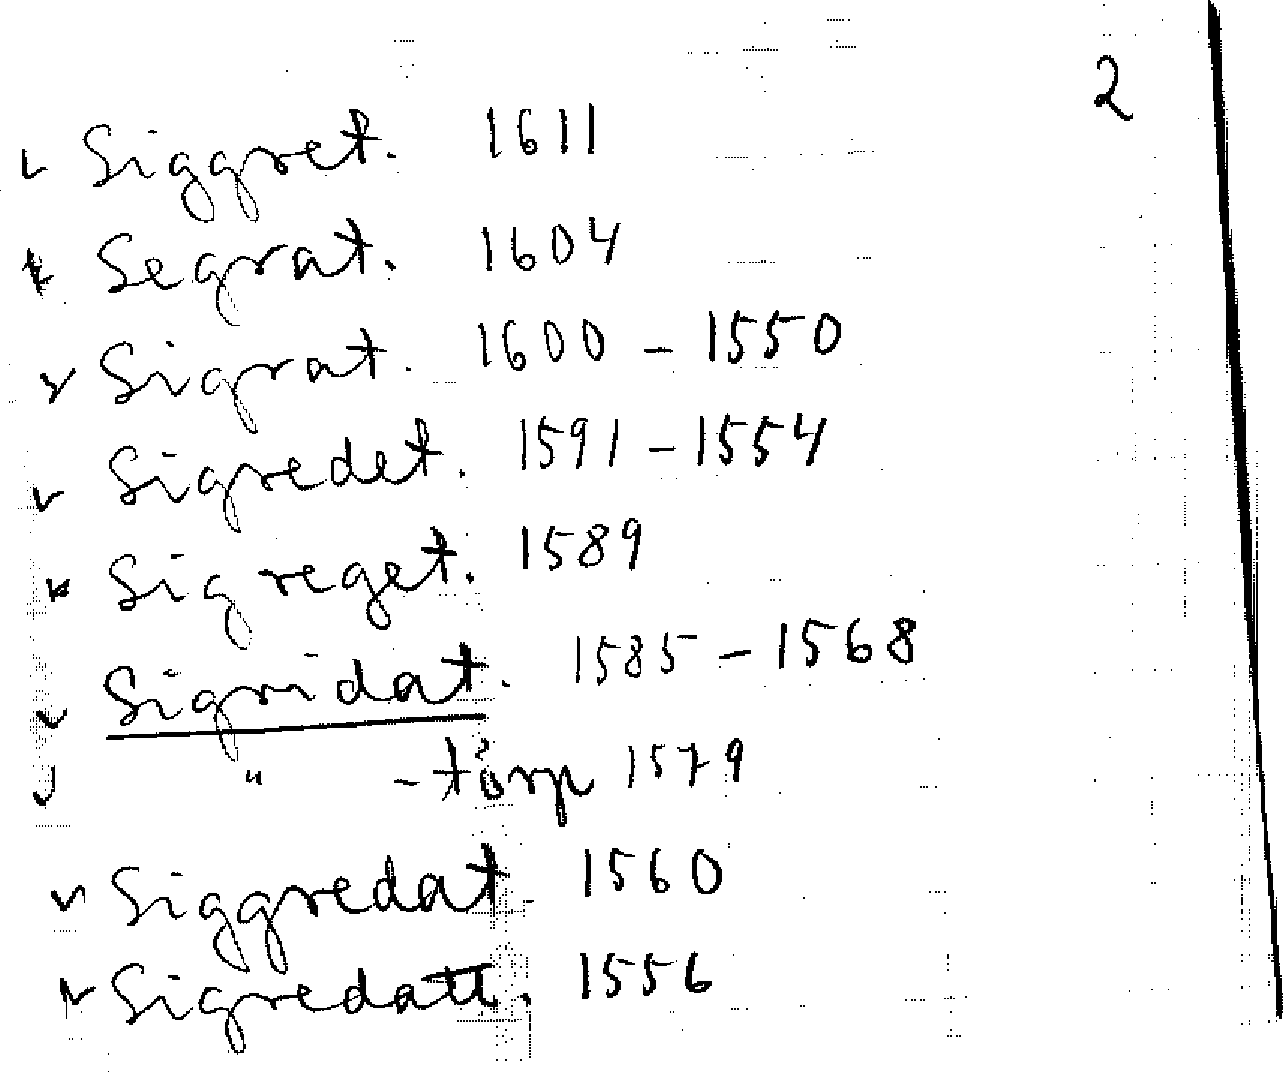 2
Siggret. 1611
Segrat. 1604
Sigrat. 1600 - 1550
Sigredet. 1591 - 1554
Sigreget. 1589
Sigridat. 1585 - 1568
" - törp 1579
Siggredat 1560
Sigredatt. 1556